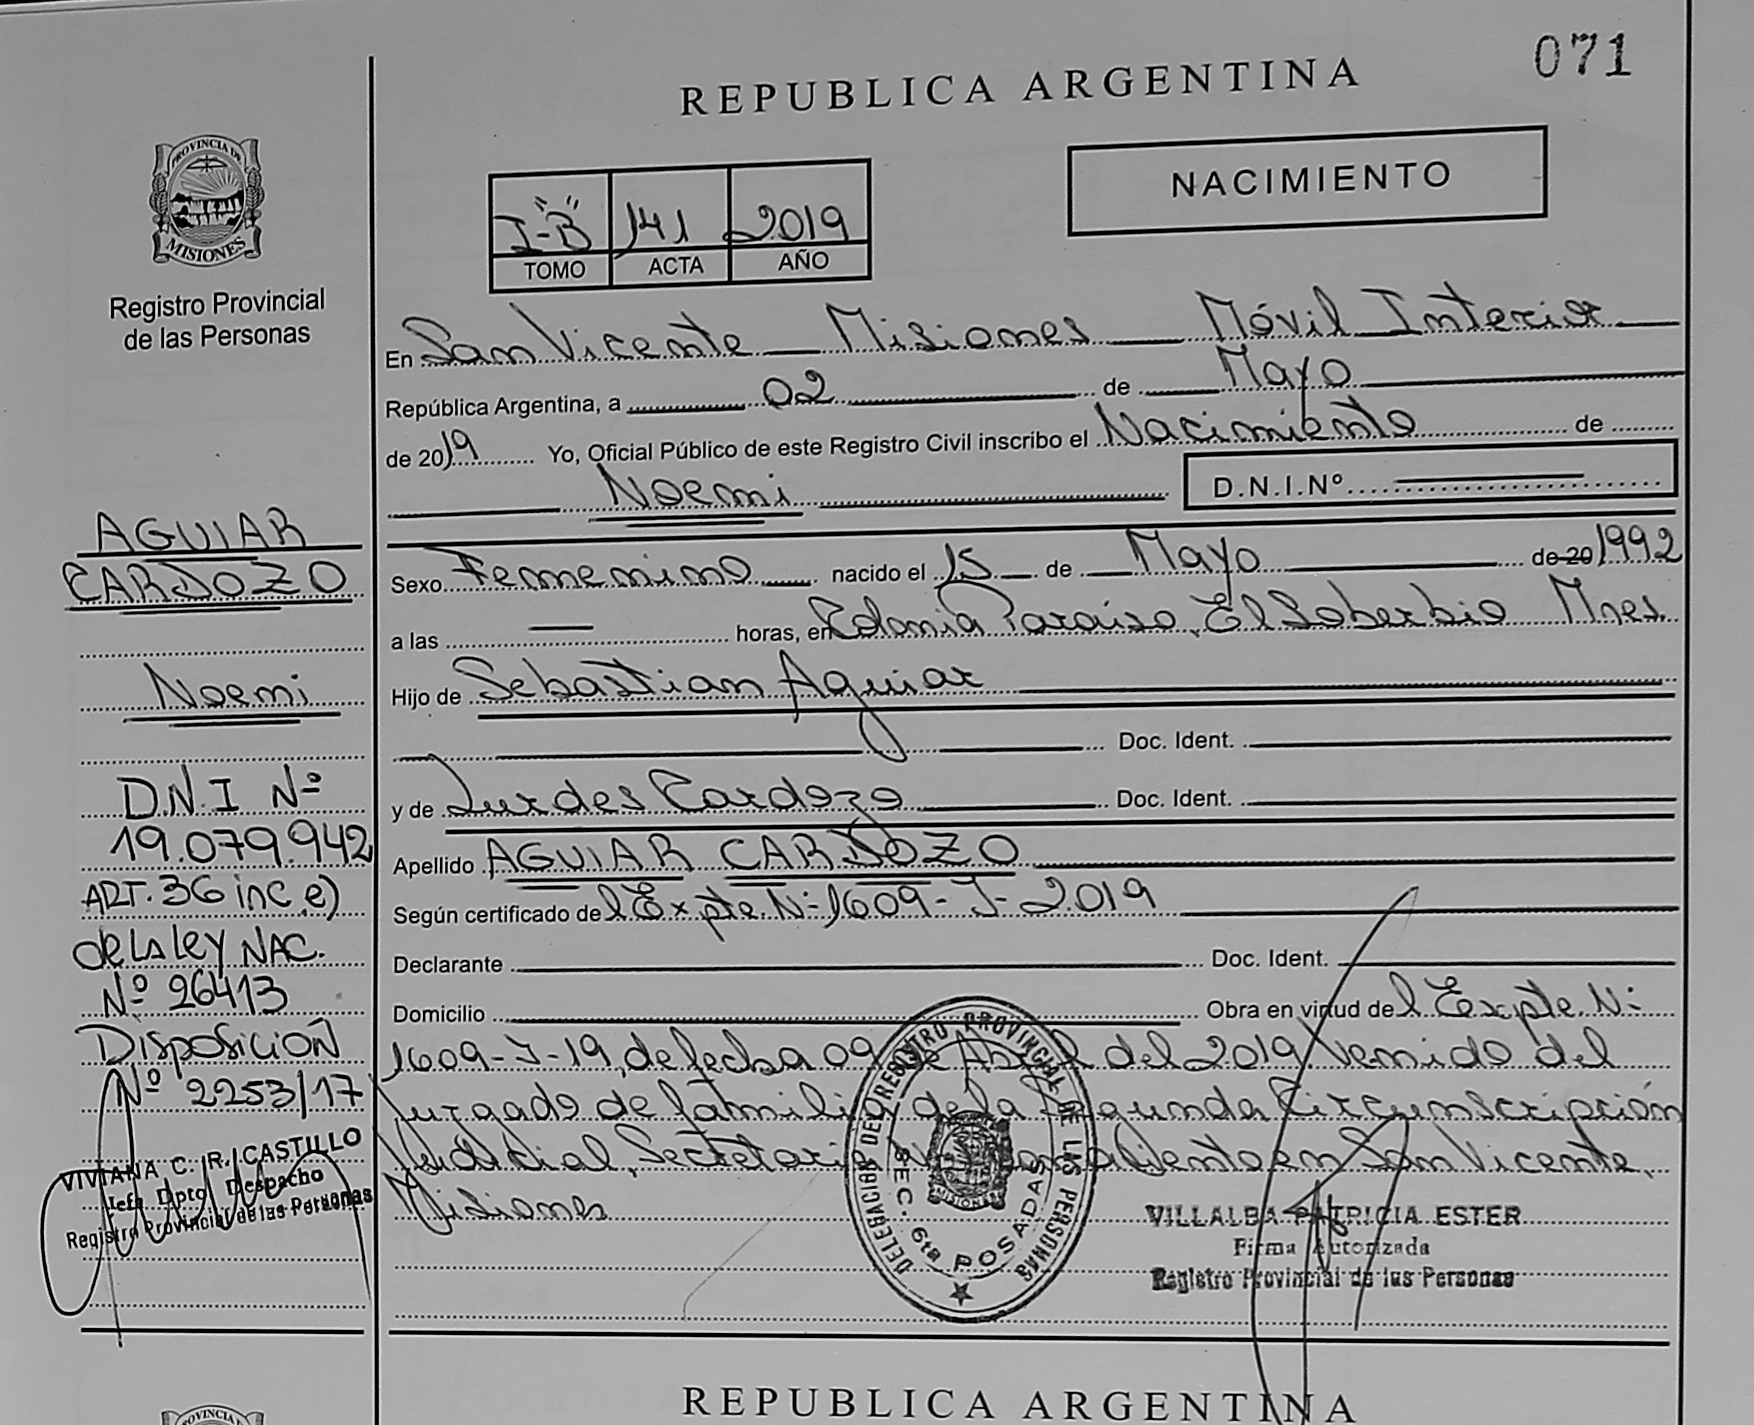 071
REPUBLICA ARGENTINA
NACIMIENTO
I-"B" 141 2019
TOMO ACTA AÑO
PROVINCIA DE
MISIONES
Registro Provincial
de las Personas
AGUIAR
CARDOZO
Noemi
D.N.I Nº
19.079.942
ART. 36 inc e)
de la ley NAC.
Nº 26413
DISPOSICIÓN
Nº 2253/17
VIVIANA C. R. CASTILLO
Jefa Dpto. Despacho
Registro Provincial de las Personas
En San Vicente Misiones Móvil Interior
República Argentina, a 02 de Mayo
de 2019 Yo, Oficial Público de este Registro Civil inscribo el Nacimiento de
Noemi D.N.I.Nº
Sexo Femenino nacido el 15 de Mayo de 20 1992
a las — horas, en Colonia Paraiso, El Soberbio Mnes.
Hijo de Sebastian Aguiar
Doc. Ident.
y de Lurdes Cardozo Doc. Ident.
Apellido AGUIAR CARDOZO
Según certificado del Expte. Nº 1609-J-2019
Declarante Doc. Ident.
Domicilio Obra en virtud del Expte. Nº
1609-J-19, de fecha 09 de Abril del 2019 Venido del
Juzgado de familia de la Segunda Circunscripción
Judicial, Secretaria en San Vicente,
Misiones
DELEGACIÓN DEL REGISTRO PROVINCIAL DE LAS PERSONAS
SEC. 6ta POSADAS
MISIONES
VILLALBA PATRICIA ESTER
Firma Autorizada
Registro Provincial de las Personas
REPUBLICA ARGENTINA